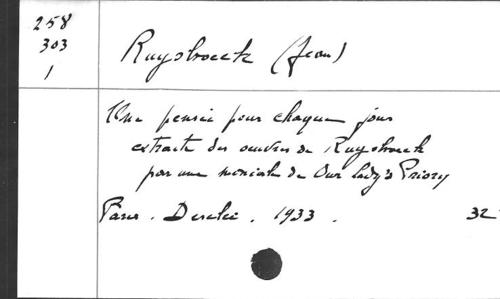 258
303
1
Ruysbroeck (Jean)
Une pensée pour chaque jour
extraite des œuvres de Ruysbroeck
par une moniale de Our Lady's Priory
Paris. Desclée. 1933.
32